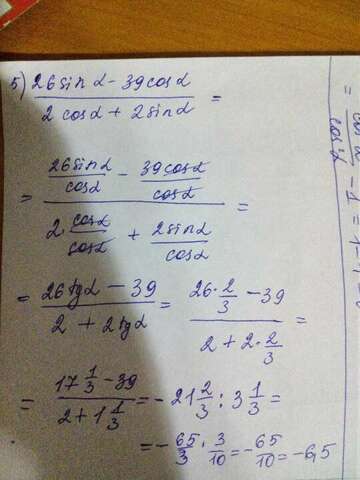 5) (26 sin α - 39 cos α) / (2 cos α + 2 sin α) =
= (26 sin α / cos α - 39 cos α / cos α) / (2 · cos α / cos α + 2 sin α / cos α) =
= (26 tg α - 39) / (2 + 2 tg α) = (26 · 2/3 - 39) / (2 + 2 · 2/3) =
= (17 1/3 - 39) / (2 + 1 1/3) = - 21 2/3 : 3 1/3 =
= - 65/3 · 3/10 = - 65/10 = - 6,5